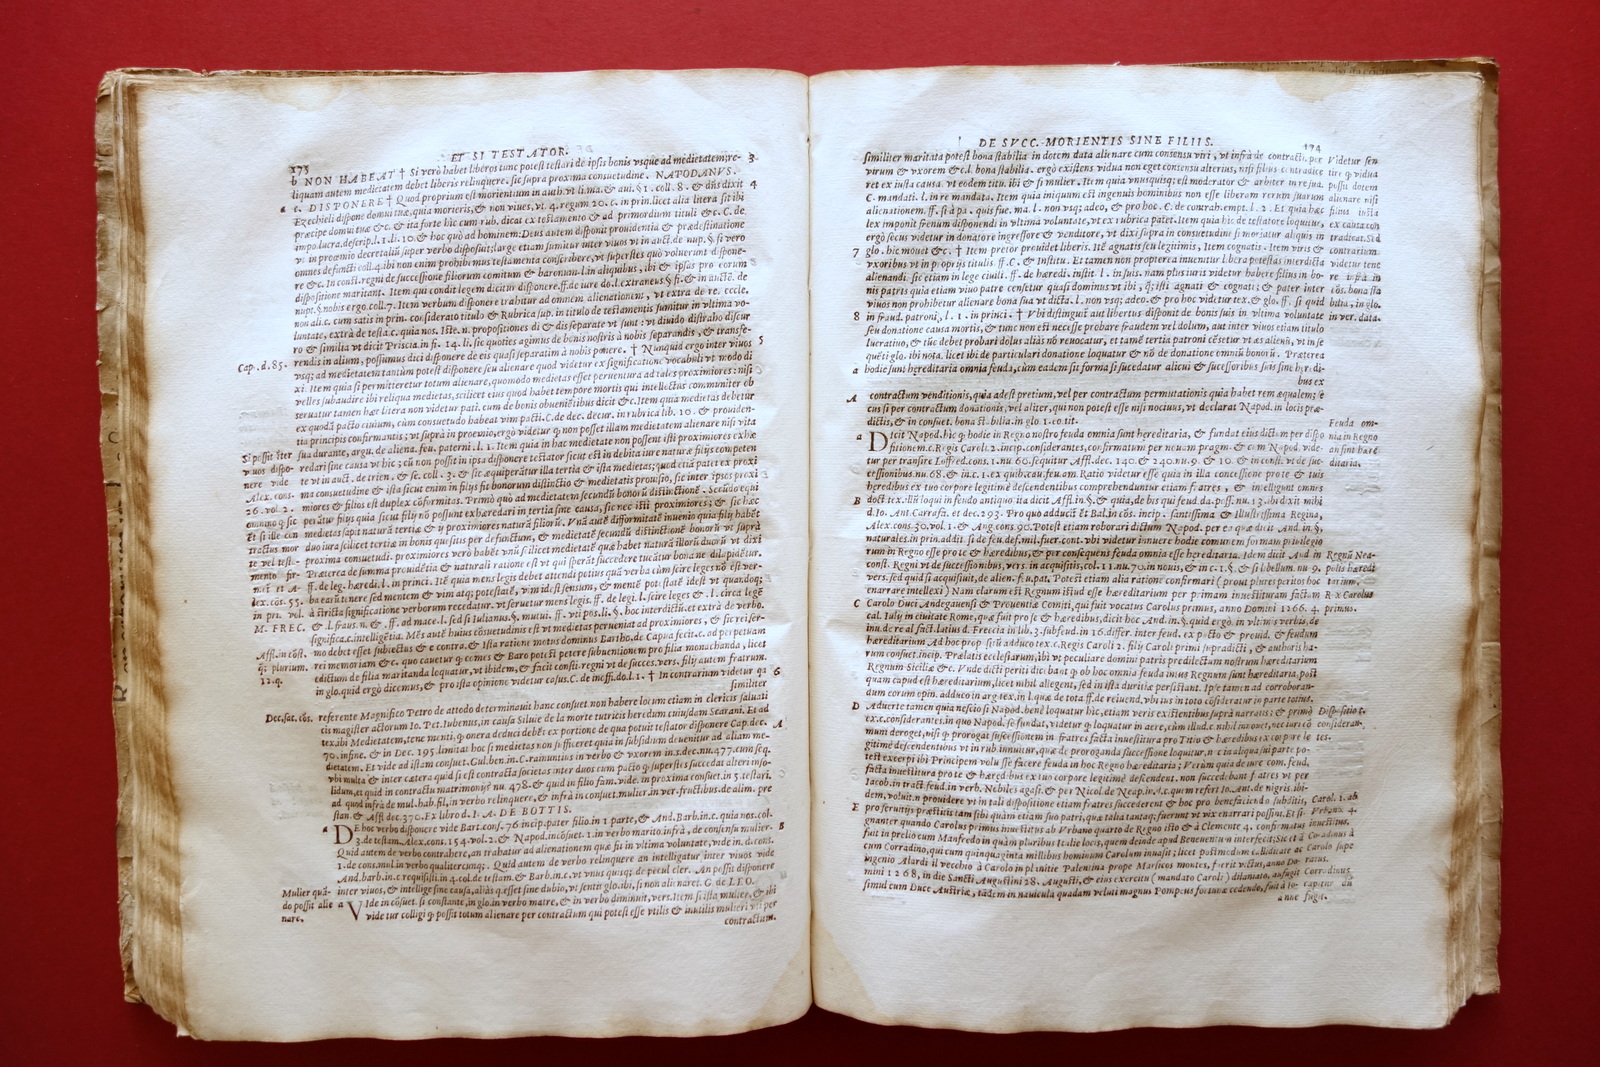 173
ET SI TESTATOR.
b NON HABEAT † Si verò habet liberos tunc potest testari de ipsis bonis vsque ad medietatem; re- 3
liquam autem medietatem debet liberis relinquere. sic supra proxima consuetudine. NAPODANVS.
c. DISPONERE † Quod proprium est morientium in auth. vt li. ma. & aui. §. 1. coll. 8. & dñs dixit 4
Ezechieli dispone domui tuæ, quia morieris, & non viues, vt 4. regum 20. c. in prin. licet alia litera sit ibi
præcipe domui tuæ &c. & ita forte hic cum rub. dicat ex testamento & ad primordium tituli &c. C. de
impo. lucra. descrip. l. 1. li. 10 & hoc quò ad hominem: Deus autem disponit prouidentia & prædestinatione
vt in proœmio decretaliũ super verbo disposuit; large etiam sumitur inter viuos vt in auct. de nup. § si vero
omnes defuncti coll. 4. ibi non enim prohibimus testamenta conscribere, vt superstes quò voluerunt dispone-
re &c. In consti. regni de successione filiorum comitum & baronum. l. in aliquibus, ibi & ipsas pro eorum
dispositione maritant. Item qui condit legem dicitur disponere. ff. de iure do. l. extraneus. § fi. & in auctẽ. de
nupt. §. nobis ergo. coll. 7. Item verbum disponere trahitur ad omnem alienationem, vt extra de re. eccle.
non ali. c. cum satis in prin. considerato titulo & Rubrica sup. in titulo de testamentis sumitur in vltima vo-
luntate, extrà de testa. c. quia nos. Iste. n. propositiones di & dis separate vt sunt: vt diuido distraho discur
ro & similia vt dicit Priscia. in fi. 14. li. sic quoties agimus de bonis nostris à nobis separandis, & transfe-
rendis in alium, possumus dici disponere de eis quasi separatim à nobis ponere. † Nunquid ergo inter viuos 5
Cap. d. 85.
vsq; ad medietatem tantùm potest disponere seu alienare quod videtur ex significatione vocabuli vt modo di
xi. Item quia si permitteretur totum alienare, quomodo medietas esset peruentura ad tales proximiores: nisi
velles subaudire ibi reliqua medietas, scilicet eius quod habet tempore mortis qui intellectus communiter ob
seruatur tamen hæc litera non videtur pati. cum de bonis obuenientibus dicit &c. Item quia medietas debetur
ex quodã pacto ciuium, cum consuetudo habeat vim pacti. C. de dec. decur. in rubrica lib. 10. & prouiden-
tia principis confirmantis; vt suprà in proemio, ergò videtur q̃ non posset illam medietatem alienare nisi vita
sua durante, argu. de aliena. feu. paterni. l. 1. Item quia in hac medietate non possent isti proximiores exhæ
Si possit iter
viuos dispo-
nere vide
Alex. cons.
26. vol. 2.
omnino q̃ sic
redari sine causa vt hic; cũ non possit in ipsa disponere testator sicut est in debita iure naturæ filijs competen
te vt in auct. de trien. & se. coll. 3. & sic æquiperatur illa tertia & ista medietas; quod etiã patet ex proxi
ma consuetudine & ista sicut enim in filijs fit bonorum distinctio & medietatis prouisio, sic inter ipsos proxi
miores & filios est duplex cõformitas. Primò quò ad medietatem secundũ bonorũ distinctionẽ. Secundo qui
peratur filius quia sicut filij nõ possunt exhæredari in tertia sine causa, sic nec isti proximiores; & sic hæc
medietas sapit naturã tertiæ & vt proximiores naturã filiorũ. Vnã autẽ difformitatẽ inuenio quia filij habẽt
duo iura scilicet tertiæ in bonis quesitis per defunctum, & medietatẽ secundũ distinctionẽ bonorũ vt suprà
proxima consuetudi. proximiores verò habẽt vnũ scilicet medietatẽ quæ habet naturã illorũ duorũ vt dixi
Et si ille con
tractus mor
te vel testa-
mento fir-
met et A-
lex. cõs. 55.
in pri. vol.
M. FREC.
Præterea de summa prouidẽtia & naturali ratione est vt qui sperãt succedere tueãtur bona ne dilapidẽtur.
ff. de leg. hæredi. l. in princi. Itẽ quia mens legis debet attendi potius quã verba cùm scire leges nõ est ver-
ba earũ tenere sed mentem & vim atq; potestatẽ, vim idest sensum, & mentẽ potestatẽ idest vt quandoq;
à stricta significatione verborum recedatur. vt seruetur mens legis. ff. de legi. l. scire leges & l. circa legẽ
& l. fraus. n. & ff. ad mace. l. sed si Iulianus. §. mutui. ff. vti pos. li. §. hoc interdictũ. et extrà de verbo.
significa. c. intelligẽtia. Mẽs autẽ huius cõsuetudinis est vt medietas perueniat ad proximiores, & sic refer-
Affl. in cõst.
q; plurium.
12. q.
mo debet esset subiectus & e contra. & ista ratione motus dominus Bartho. de Capua fecit. c. ad perpetuam
rei memoriam &c. quo cauetur q̃ comes & Baro potest petere subuentionem pro filia monachanda, licet
edictum de filia maritanda loquatur, vt ibidem, & facit consti. regni vt de succes. vers. filij autem fratrum.
in glo. quid ergò dicemus, & pro ista opinione videtur casus. C. de ineffi. do. l. 1. † In contrarium videtur qa 6
similiter
Dec. sat. cõs.
referente Magnifico Petro de attodo determinauit hanc consuet. non habere locum etiam in clericis saluati
cis magister actorum Io. Pet. Iubenus, in causa Siluie de la morte tutricis heredum cuiusdam Scarani. Et ad
tex. ibi Medietatem, tene menti, q̃ onera deduci debẽt ex portione de qua potuit testator disponere Cap. dec. A
70. in fine. & in Dec. 195. limitat hoc si medietas non sufficeret quia in subsidium deuenitur ad aliam me-
dietatem. Et vide ad istam consuet. Gul. ben. in C. raimuntius in verbo & vxorem in. 5. dec. nu. 477. cum seq.
vbi multa & inter cætera quid si est contracta societas inter duos cum pacto q̃ superstes succedat alteri info-
lidum, et quid in contractu matrimonij nu. 478. & quid in filio fam. vide. in proxima consuet. in 5. testari.
ad quod infrà de mul. hab. fil. in verbo relinquere, & infrà in consuet. mulier. in ver. fructibus. de alim. pre
stan. & Affl. dec. 370. Ex libro d. I. A. DE BOTTIS.
a DE hoc verbo disponere vide Bart. cons. 76. incip. pater filio. in 1 parte, & And. Barb. in c. quia nos. col.
3. de testam. Alex. cons. 154. vol. 2. & Napod. in cõsuet. 1. in verbo marito. infrà, de consensu mulier. B
Quid autem de verbo contrahere, an trahatur ad alienationem quæ fit in vltima voluntate, vide in. d. cons.
1. de cons. mul. in verbo qualitercunq;. Quid autem de verbo relinquere an intelligatur inter viuos vide
And. barb. in c. requisisti. in 4. col. de testam. & Barb. in c. vt vnus quisq; de pecul. cler. An possit disponere
inter viuos, & intellige sine causa, aliàs q. esset sine dubio, vt sentit glo. ibi, si non alienaret. G. de LEO.
Mulier quã-
do possit alie
nare.
a VIde in cõsuet. si constante, in glo. in verbo matre, & in verbo diminuit, vers. Item si ista mulier, & ibi
vide tur colligi q̃ possit totum alienare per contractum qui potest esse vtilis & inutilis mulieri vti per
contractum.
DE SVCC. MORIENTIS SINE FILIIS.
174
similiter maritata potest bona stabilia in dotem data alienare cum consensu viri, vt infrà de contracti. per
virum & vxorem &c. l. bona stabilia. ergò existens vidua non eget consensu alterius, nisi filius contradice
ret ex iusta causa. vt eodem titu. ibi & si mulier. Item quia vnusquisq; est moderator & arbiter in re sua.
C. mandati. l. in re mandata. Item quia iniquum est ingenuis hominibus non esse liberam rerum suarum
alienationem. ff. si à pa. quis fue. ma. l. non vsq; adeo, & pro hoc. C. de contrah. empt. l. 2. Et quia hæc
lex imponit frenum disponendi in vltima voluntate, vt ex rubrica patet. Item quia hic de testatore loquitur,
ergò secus videtur in donatore ingressore & venditore, vt dixi supra in consuetudine si moriatur aliquis in
7 glo. hic mouet &c. † Item pretor prouidet liberis. Itẽ agnatis seu legitimis, Item cognatis. Item viris &
vxoribus vt in proprijs titulis. ff. C. & Institu. Et tamen non propterea inuenitur libera potestas interdicta
alienandi. sic etiam in lege ciuili. ff. de hæredi. instit. l. in suis. nam plus iuris videtur habere filius in bo-
nis patris quia etiam viuo patre censetur quasi dominus vt ibi, q; isti agnati & cognati; & pater inter
viuos non prohibetur alienare bona sua vt dicta. l. non vsq; adeo. & pro hoc videtur tex. & glo. ff. si quid
8 in fraud. patroni, l. 1. in princi. † Vbi distinguit aut libertus disponit de bonis suis in vltima voluntate
seu donatione causa mortis, & tunc non est necesse probare fraudem vel dolum, aut inter viuos etiam titulo
lucratiuo, & tũc debet probari dolus aliàs nõ reuocatur, et tamẽ tertia patroni cẽsetur vt æs alienũ, vt in se
quẽti glo. ibi nota. licet ibi de particulari donatione loquatur & nõ de donatione omniũ bonorũ. Præterea
a hodie sunt hereditaria omnia feuda, cùm eadem sit forma si succedatur alicui & successoribus suis sine heredi-
bus ex
Videtur sen
tire q̃ vidua
possit dotem
alienare nisi
filius iusta
ex causa con
tradicat. Sed
contrarium
videtur tene
re infrà in
cõs. bona sta
bilia, in glo.
in ver. data.
A contractu venditionis, quia adest pretium, vel per contractum permutationis quia habet rem æqualem; se
cus si per contractum donationis, vel aliter, qui non potest esse nisi nociuus, vt declarat Napod. in locis præ-
dictis, & in consuet. bona stabilia. in glo. 1. eo. tit.
a DIcit Napod. hic q̃ hodie in Regno nostro feuda omnia sunt hereditaria, & fundat eius dictum per dispo
sitionem. c. Regis Caroli 2. incip. considerantes, confirmatum per nouam pragm. & cum Napod. vide
tur per transire Loffred. cons. 1. nu. 60. sequitur Affl. dec. 140. & 240. nu. 9. & 10. & in consti. vt de suc-
cessionibus. nu. 68. & in c. 1. ex quib. cau. feu. am. Ratio videtur esse quia in illa concessione prote &
heredibus ex tuo corpore legitimè descendentibus comprehenduntur etiam fratres, & intelligunt omnes
Feuda om-
nia in Regno
an sint hære
ditaria.
B doct. tex. illũ loqui in feudo antiquo ita dicit Affl. in. §. & quia, de his qui feu. da. pos. nu. 12. ibi dixit mihi
d. Io. Ant. Carrafa. et dec. 293. Pro quo adducit & Bal. in cõs. incip. santissima & Illustrissima Regina,
Alex. cons. 30. vol. 1. & Ang. cons. 90. Potest etiam roborari dictum Napod. per ea quæ dicit And. in §.
naturales. in prin. addit. si de feu. def. mil. fuer. cont. vbi videtur innuere hodie communem formam priuilegio
rum in Regno esse pro te & hæredibus, & per consequens feuda omnia esse hereditaria. Idem dicit And. in
const. Regni vt de successionibus, vers. in acquisitis, col. 11. nu. 70. in nouis, & in c. 1. §. & si libellum. nu. 9.
vers. sed quid si acquisiuit, de alien. f. u. pat. Potest etiam alia ratione confirmari (prout plures peritos hoc
enarrare intellexi) Nam clarum est Regnum istud esse hæreditarium per primam inuestituram factam
Regnũ Nea-
polis hæredi
tarium.
Rex Carolus
primus.
C Carolo Duci Andegauensi & Prouentiæ Comiti, qui fuit vocatus Carolus primus, anno Domini 1266. 4.
cal. Iulij in ciuitate Rome, quæ fuit pro se & hæredibus, dicit hoc And. in §. quid ergò. in vltimis verbis, de
inu. de re al. fact. latius d. Freccia in lib. 3. sub feud. in 16. differ. inter feud. ex pacto & prouid. & feudum
hæreditarium Ad hoc propositũ adduco tex. c. Regis Caroli 2. filij Caroli primi supradicti, & authoris ha-
rum consuet. incip. Prælatis ecclesiarum, ibi vt peculiare dominij patris predilectum nostrum hæreditarium
Regnum Siciliæ &c. Vnde dicti periti dicebant q̃ ob hoc omnia feuda intus Regnum sunt hæreditaria, post
quam caput est hæreditarium, licet nihil allegent, sed in ista duritie persistant. Ipse tamen ad corroboran-
dum eorum opin. adduco in arg. tex. in l. quæ de tota. ff. de rei uend. vbi ius in toto cõsideratur in parte totius.
D Aduerte tamen quia nescio si Napod. benè loquatur hic, etiam veris existentibus suprà narratis; & primò
ex. c. considerantes. in quo Napod. se fundat, videtur q̃ loquatur in aere, cùm illud. c. nihil innouet, nec iuri cõ
muni deroget, nisi q̃ prorogat successionem in fratres facta inuestitura pro Titio & hæredibus ex corpore le
gitimè descendentibus vt in rub. innuitur, quæ de proroganda successione loquitur, nec in aliqua sui parte po-
test excerpi ibi Principem voluisse facere feuda in hoc Regno hæreditaria; Verùm quia de iure com. feud.
facta inuestitura pro te & hæredibus ex tuo corpore legitimè descendent. non succedebant fratres vt per
Iacob. in tract. feud. in verb. Nobiles agasi. & per Nicol. de Neap. in. l. A. quum refert Io. Ant. de nigris. ibi-
dem, voluit. n. prouidere vt in tali dispositione etiam fratres succederent & hoc pro benefaciendo subditis,
Dispositio t.
consideran-
tes.
E pro seruitijs præstitis tam sibi quàm etiam suo patri, quæ talia tantaq; fuerunt vt vix enarrari possint. Et si-
gnanter quando Carolus primus inuestitus ab Vrbano quarto de Regno isto & à Clemente 4. confirmatus
fuit in prelio cum Manfredo in quàm pluribus Italie locis, quem deinde apud Beneuentum interfecit; Sic et à
cum Corradino, qui cum quinquaginta millibus hominum Carolum inuasit; licet postmodum calliditate ac
ingenio Alardi il vecchio à Carolo in planitie Palentina prope Marsicos montes, fuerit victus, anno Do-
mini 1268, in die Sancti Augustini 28. Augusti, & eius exercitu (mandato Caroli) dilaniato, aufugit
simul cum Duce Austriæ, tandem in nauicula quadam veluti magnus Pompeius fortunæ cedendo, fuit à Io-
anne fugit.
Carol. 1. ab
Vrbano 4.
inuestitus.
Corradinus à
Carolo supe
ratus.
Corradinus
capitur du